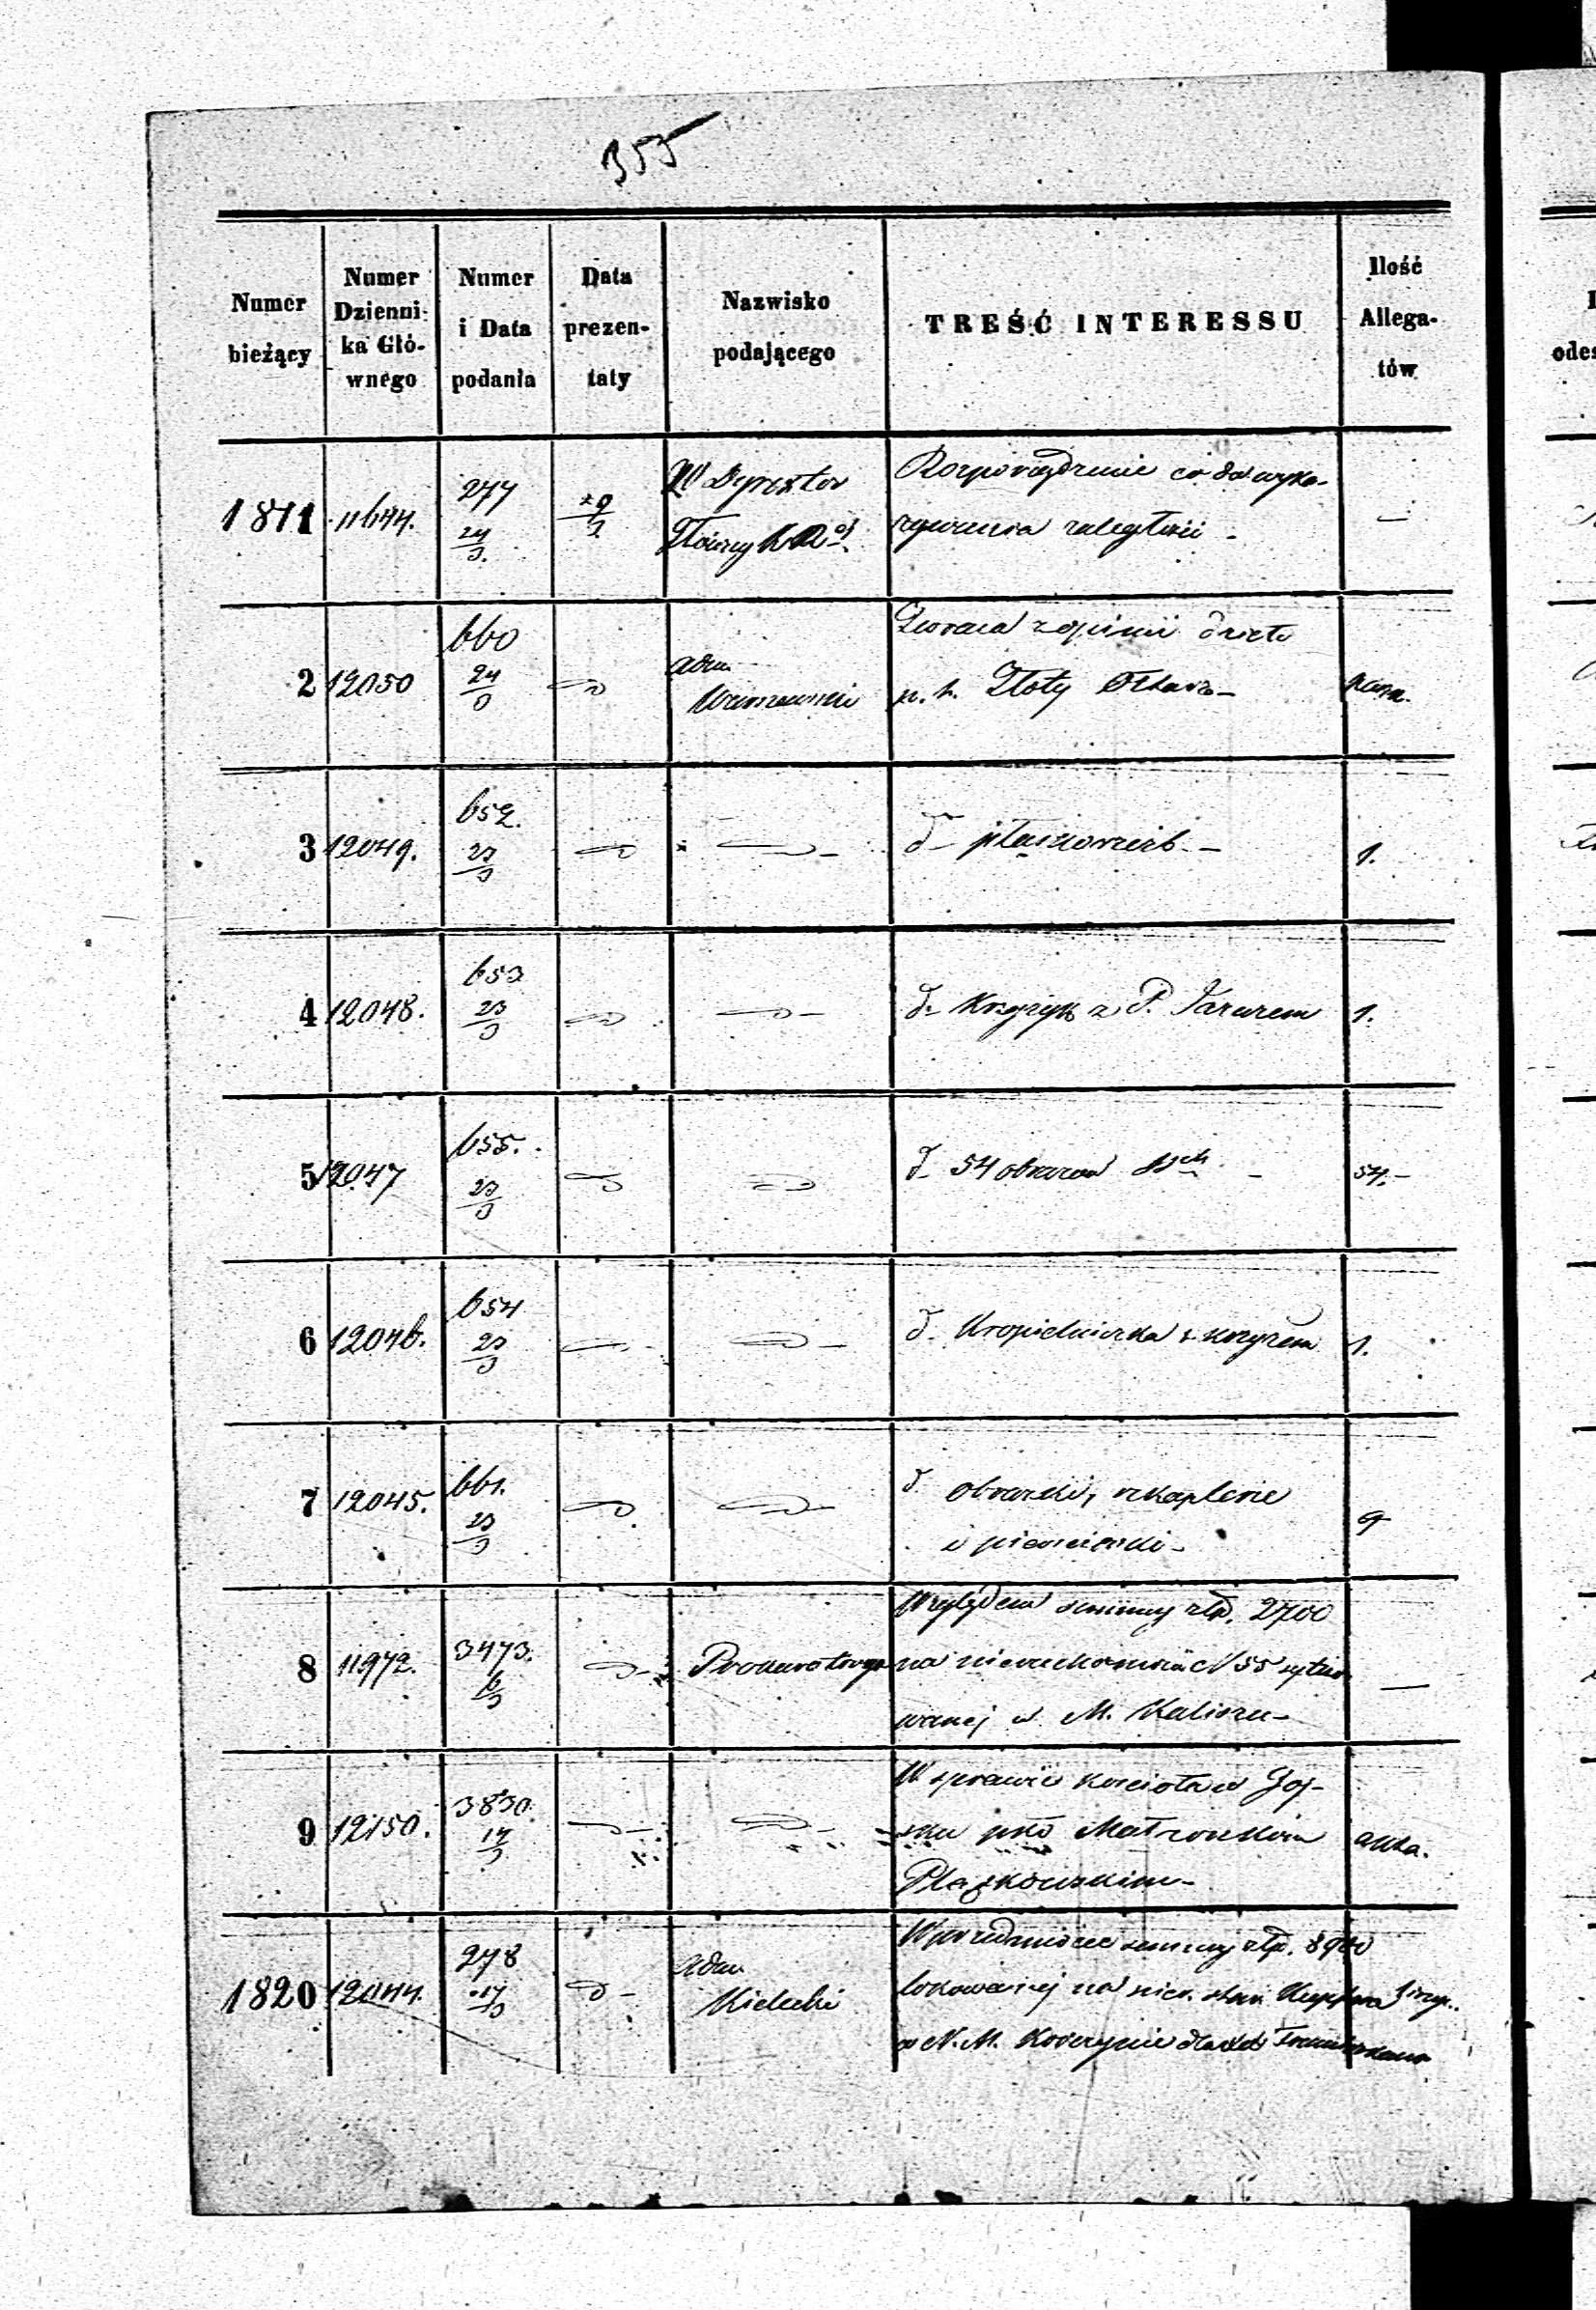 355
Numer bieżący
Numer Dzienni- ka Głó- wnego
Numer i Data podania
Data prezen- taty
Nazwisko podającego
TREŚĆ INTERESSU
Ilość Allega- tów
1811 11644. 277 24/3. 29/3 Dyrektor Główny Rozporządzenie co do wyka-
zywania zaległości - —
2 12050 660 24/3 Adm Warszawski Zwraca z opinii dzieło
p. t. Złoty Ołtarz -
3 12049. 652. 23/3 d- płaskorzeźb. - 1.
4 12048. 653 23/3 d- Krzyżyk z P. Jezusem 1.
5 12047 655. 23/3 d- 54 obrazów - 54. -
6 12046. 654 23/3 d- Kropielniczka z krzyżem 1.
7 12045. 661. 23/3 d- obrazki, szkaplerze
i pierścionki - 9
8 11972. 3473. 6/3 Prokuratorya Względem summy złp. 2700
na nieruchomości N 55 sytuo
wanej w M. Kaliszu - —
9 12150. 3830. 17/3 W sprawie kościoła w
pko Małżonkom akta.
1820 12044. 278 17/3 Adm Kielecki W przedmiocie summy złp.
lokowanej na
w N. M. Korczynie